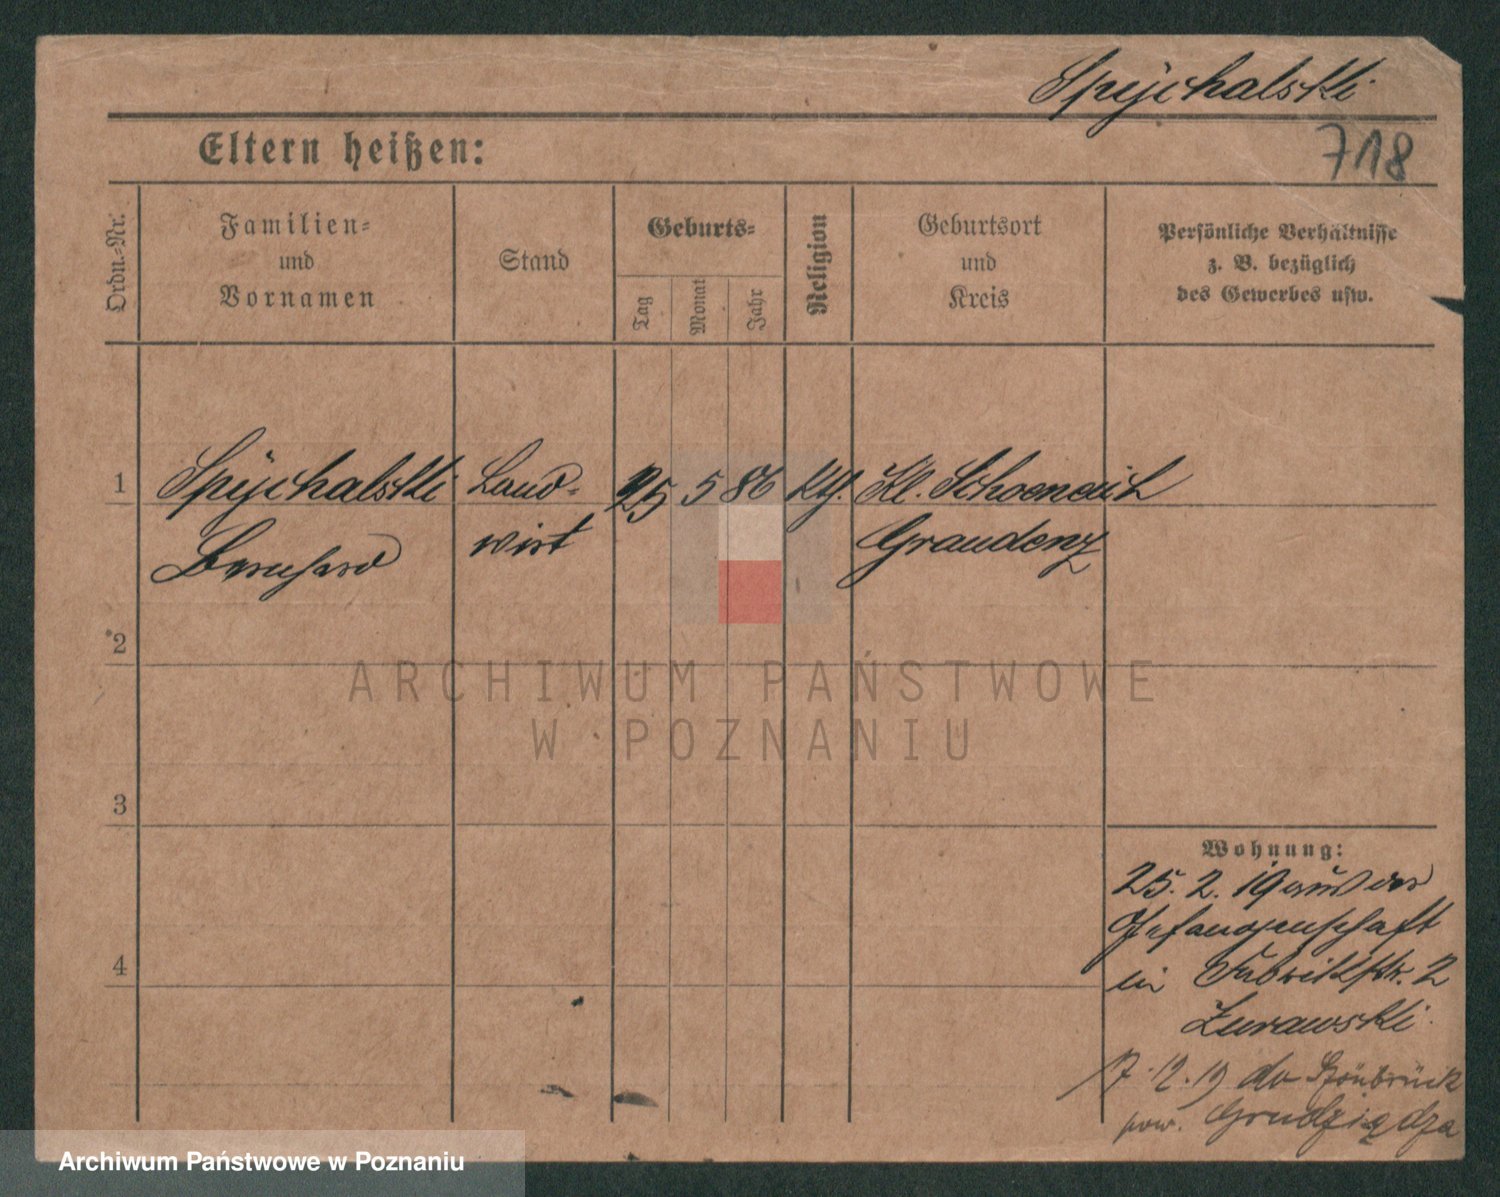 Spÿchalski
718
Eltern heißen:
Ordn.-Nr.
Familien-
und
Vornamen
Stand
Geburts-
Tag
Monat
Jahr
Religion
Geburtsort
und
Kreis
Persönliche Verhältnisse
z. B. bezüglich
des Gewerbes usw.
1 Spÿchalski Land- 25 5 86 kth. Kl. Schoeneich
Bernhard wirt Graudenz
2
3
4
Wohnung:
25. 2. 19 aus der
Gefangenschaft
in Fabrikstr. 2
Zurawski.
7.12.19 do Szönbrück
pow. Grudziądza
ARCHIWUM PAŃSTWOWE
W POZNANIU
Archiwum Państwowe w Poznaniu